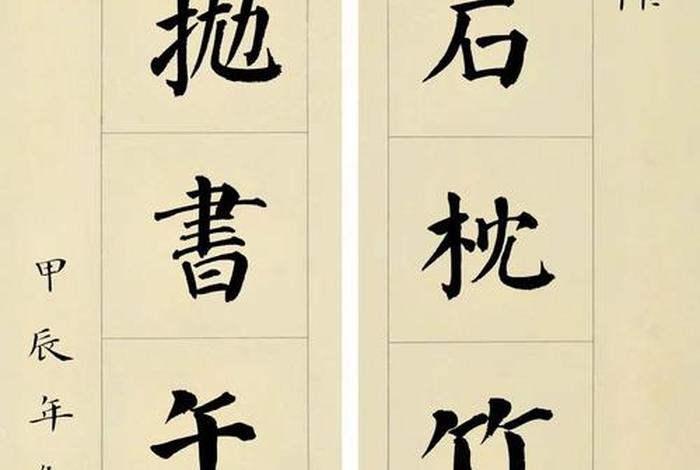 石枕竹
抛書午
甲辰年